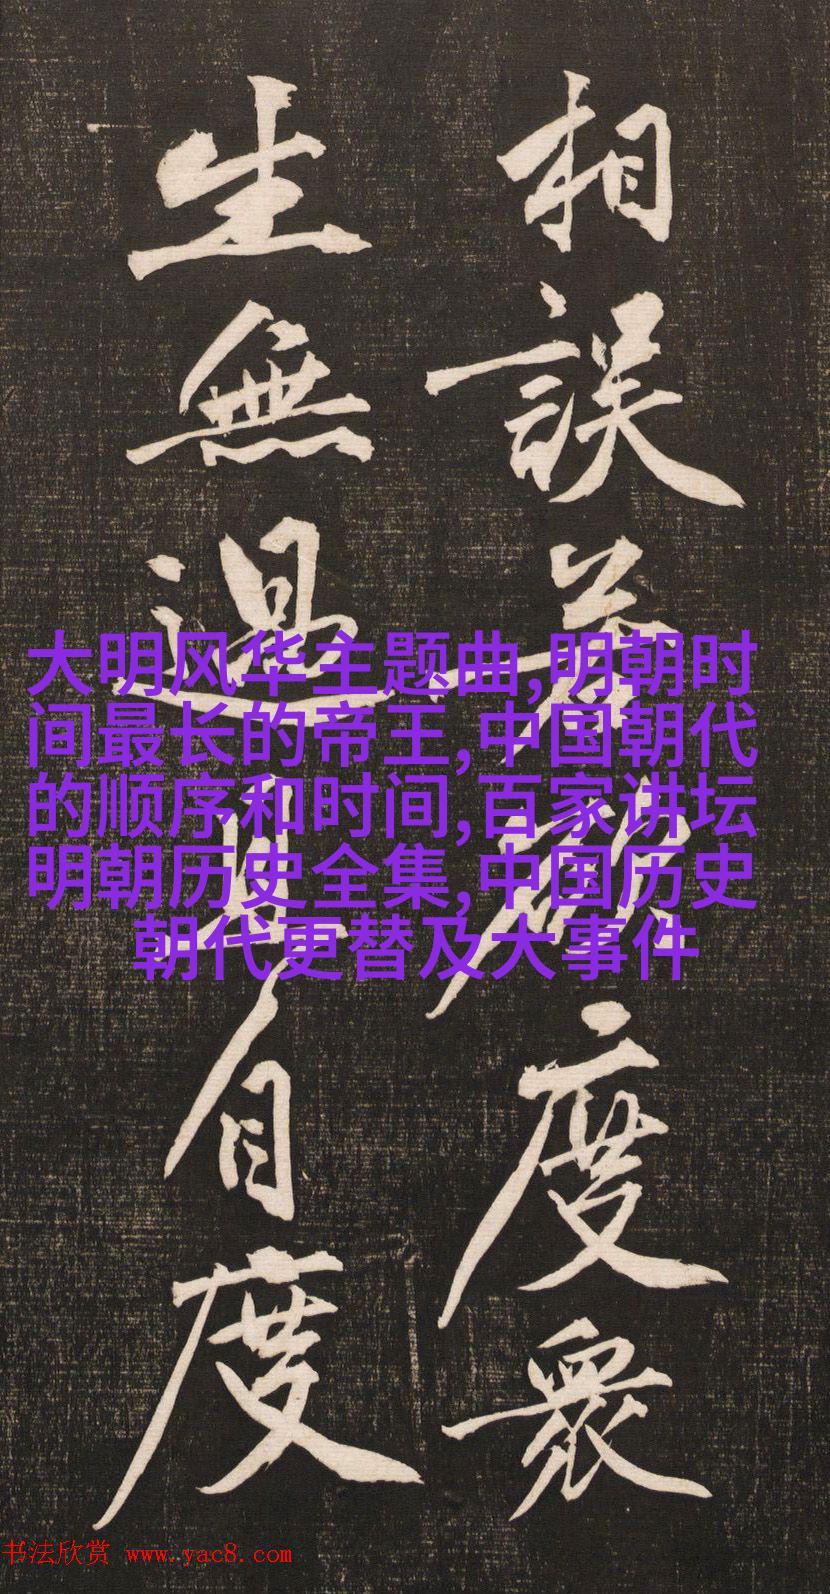 相誤若欲度眾
生無過且自度
大明风华主题曲,明朝时
间最长的帝王,中国朝代
的顺序和时间,百家讲坛
明朝历史全集,中国历史
朝代更替及大事件
书法欣赏 www.yac8.com